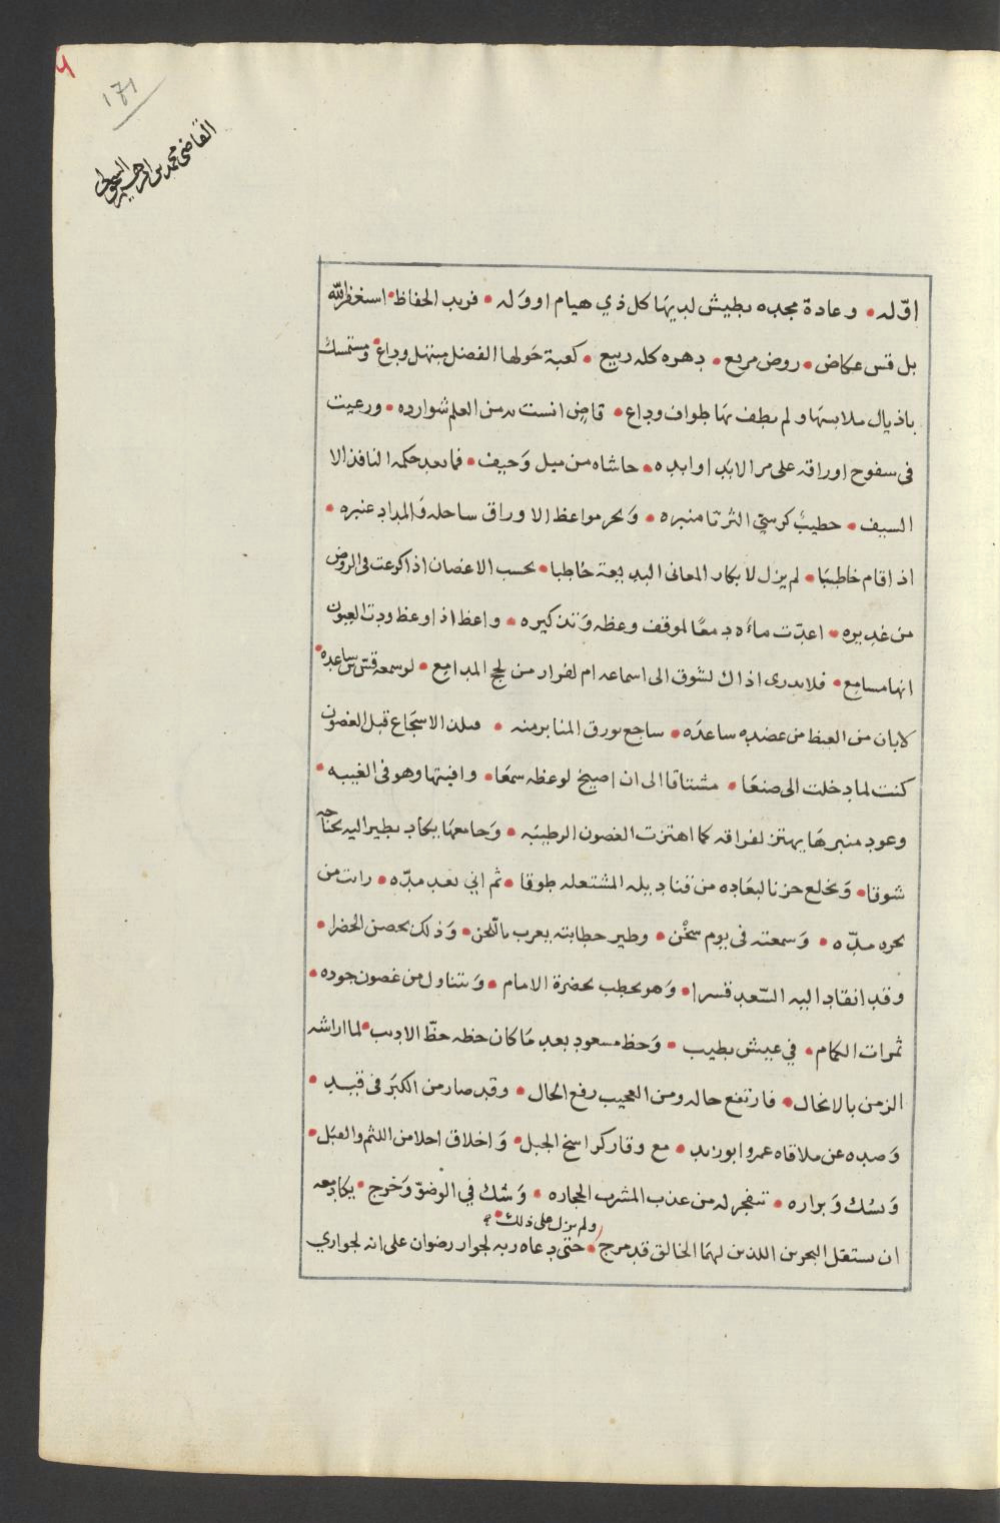 ١٦٩
القاضي محمد بن ابراهيم السحولي
اوّله • وعادة مجده يطيش لديها كل ذي هيام اووَله • فريد الحفاظ • استغفر الله
بل قس عكاض • روض مريع • دهره كله ربيع • كعبة حَولها الفضل مبتهل وداع • ومستمسك
باذيال ملابسها ولم يطف بها طواف وداع • قاضٍ انست به من العلم شوارده • ورعيت
في سفوح اوراقه على مر الابد اوابده • حاشاه من ميل وَحيف • فما بعد حكمه النافذ الا
السيف • خطيبٌ كرسيّ الثريا منبره • وَبحر مواعظ الاوراق ساحله وَالمداد عنبره •
اذا قام خاطبًا • لم يزل لابكار المعاني البديعة خاطبا • تحسب الاغصان اذا كرعت في الروض
من غديره • اعدّت ماءه دمعًا لموقف وعظه وَتذكيره • واعظ اذا وعظ ودت العيون
انها مسامع • فلا يدرى اذاك لشوق الى اسماعه ام لفرار من لجج المدامع • لو سمعه قسّ بن ساعده •
لابان من الغيظ من عضده ساعدَه • ساجع بورق المنابر منه • الاسجاع قبل الغصون
كنت لما دخلت الى صنعا • مشتاقا الى ان اصيخ لوعظه سمعًا • وافيتها وهو في الغيبه •
وعود منبرها يهتز لفراقه كما اهتزت الغصون الرطيبه • وَجامعها يكاد يطير اليه بجناحه
شوقا • وَيخلع حزنا لبعاده من قناديله المشتعله طوقا • ثم اني بعد مدّه • رايت من
بحره مدّه • وَسمعته في يوم سخْن • وطير خطابته يعرب باللحن • وَذلك بحصن الخضرا •
وقد انقاد اليه السّعد قسرا • وَهو يخطب بحضرة الامام • وَيتناول من غصون جوده •
ثمرات الكمام • في عيش يطيب • وَحظ مسعود بعد مَا كان حظه حظّ الاديب • لما اراشه
الزمن بالانخال • فارتفع حاله ومن العجيب رفع الحال • وقد صار من الكبَر في قيد •
وَصده عن ملاقاه عمرو ابو زيد • مع وقار كراسخ الجبل • وَاخلاق احلا من اللثم والقبَل •
وَنسُك وَبواره • تتفجر له من عذب المشرب الحجاره • وَشك في الوضوّ وَخرج • يكاد معه
ولم يزل على ذلك •
ان يستقل البحرين اللذين لهما الخالق قد مرج • حتى دعاه ربه لجوار رضوان على انه لجواري